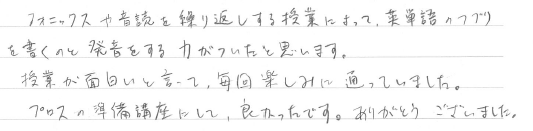 フォニックスや音読を繰り返しする授業によって、英単語のつづり
を書くのと発音をする力がついたと思います。
授業が面白いと言って、毎回楽しみに通っていました。
プロスの準備講座にして、良かったです。ありがとうございました。